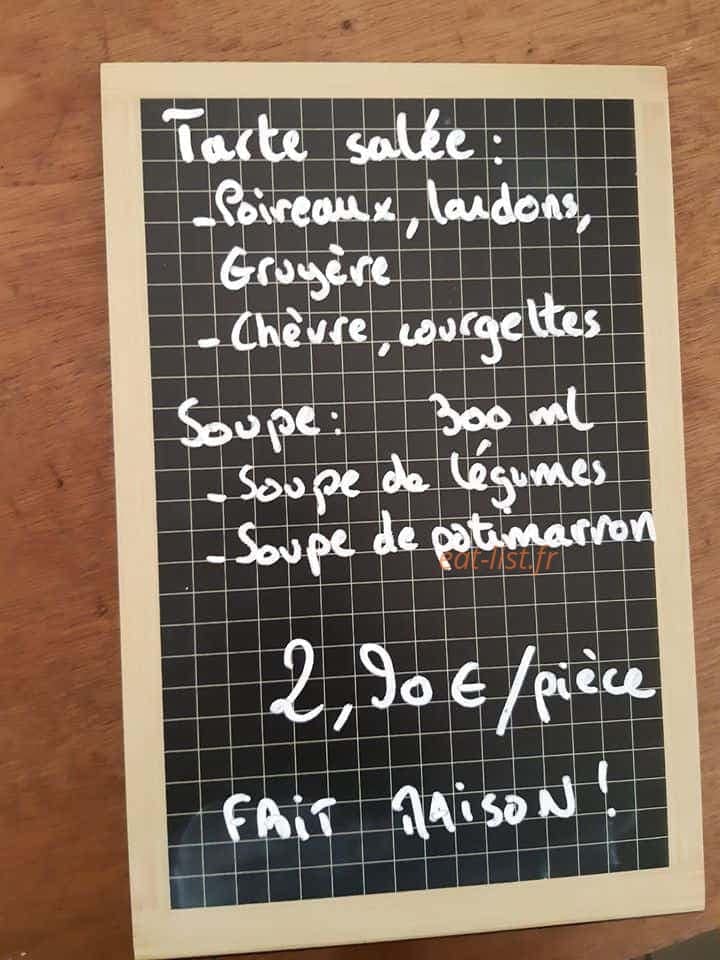 Tarte salée :
- Poireaux, lardons,
Gruyère
- Chèvre, courgettes
Soupe : 300 ml
- Soupe de légumes
- Soupe de potimarron
eat-list.fr
2,90 € / pièce
FAIT MAISON !